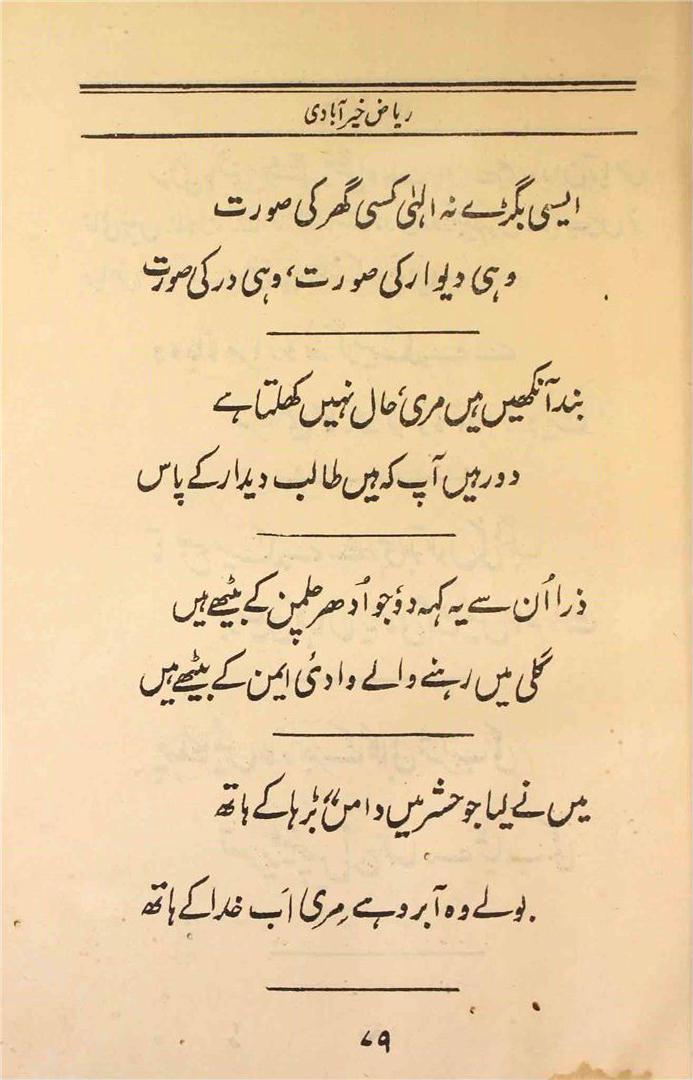 ریاض خیرآبادی
ایسی بگڑے نہ الہٰی کسی گھر کی صورت
وہی دیوار کی صورت، وہی در کی صورت
بند آنکھیں ہیں مری، حال نہیں کھلتا ہے
دور ہیں آپ کہ ہیں طالب دیدار کے پاس
ذرا اُن سے یہ کہہ دو، جو اُدھر چلمن کے بیٹھے ہیں
گلی میں رہنے والے وادیٔ ایمن کے بیٹھے ہیں
میں نے لیا جو حشر میں دامن، بڑہا کے ہاتھ
بولے وہ آبرو ہے مِری اَب خدا کے ہاتھ
۷۹